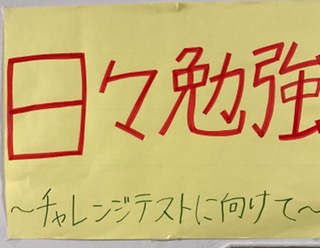 日々勉強
～チャレンジテストに向けて～